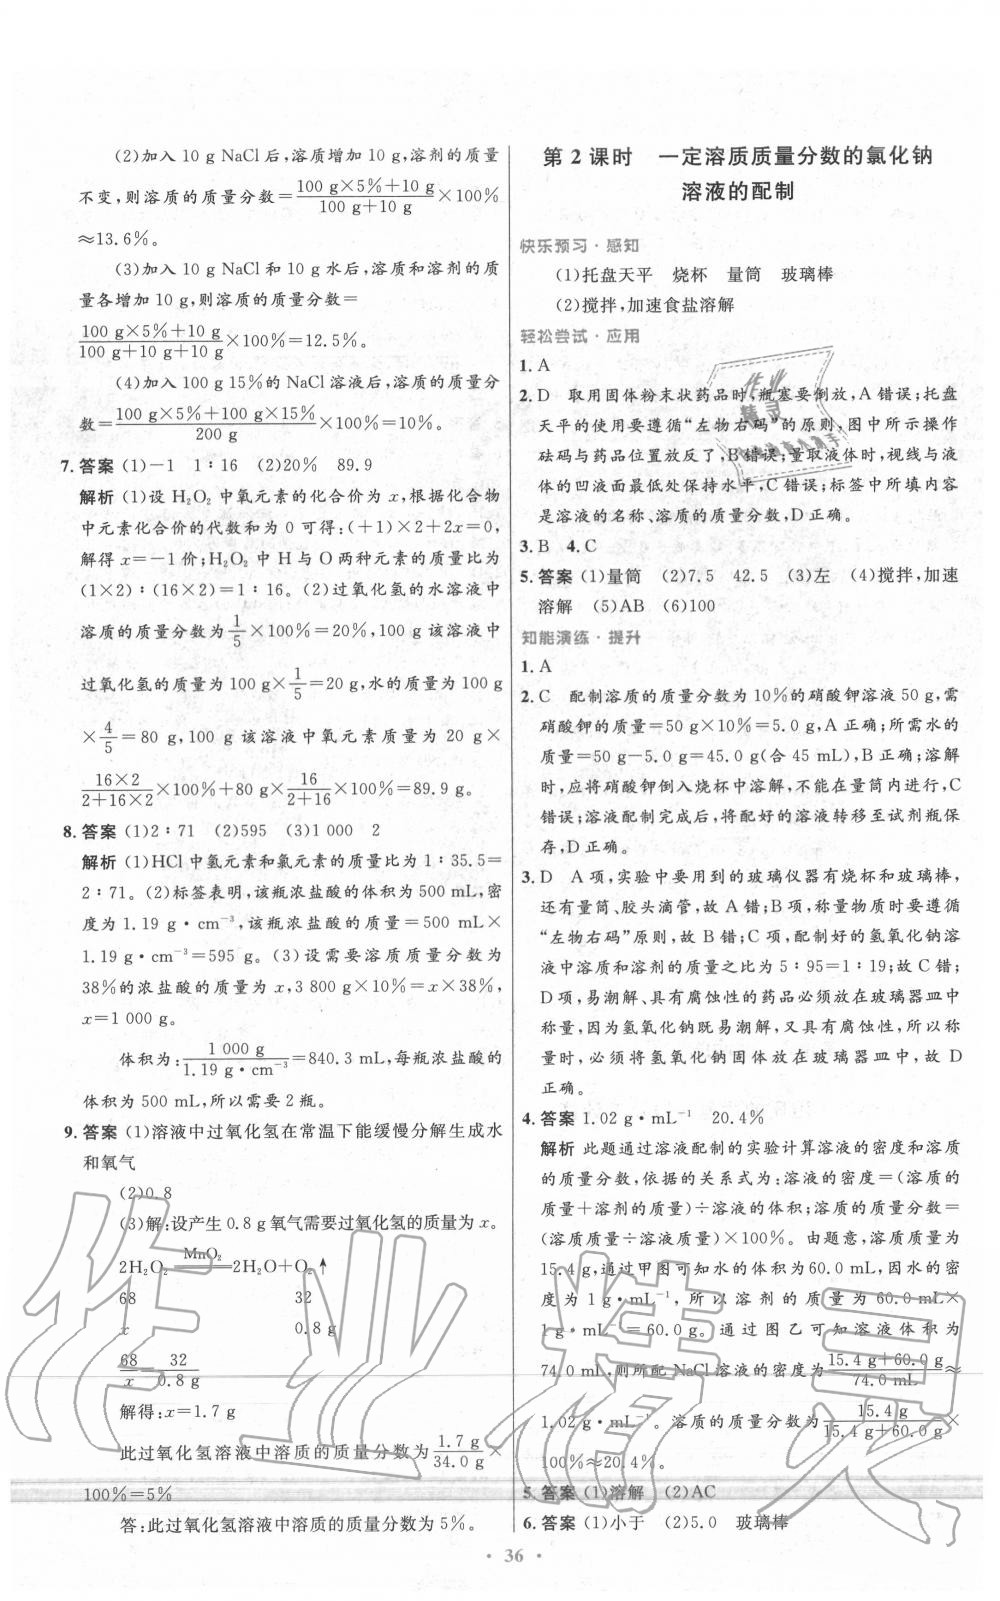 (2)加入 10 g NaCl 后,溶质增加 10 g,溶剂的质量
不变,则溶质的质量分数=(100 g×5%+10 g)/(100 g+10 g)×100%
≈13.6%。
(3)加入 10 g NaCl 和 10 g 水后,溶质和溶剂的质
量各增加 10 g,则溶质的质量分数=
(100 g×5%+10 g)/(100 g+10 g+10 g)×100%=12.5%。
(4)加入 100 g 15%的 NaCl 溶液后,溶质的质量分
数=(100 g×5%+100 g×15%)/(200 g)×100%=10%。
7. 答案 (1)-1 1∶16 (2)20% 89.9
解析 (1)设 H₂O₂ 中氧元素的化合价为 x,根据化合物
中元素化合价的代数和为 0 可得:(+1)×2+2x=0,
解得 x=-1 价;H₂O₂ 中 H 与 O 两种元素的质量比为
(1×2)∶(16×2)=1∶16。(2)过氧化氢的水溶液中
溶质的质量分数为1/5×100%=20%,100 g 该溶液中
过氧化氢的质量为 100 g×1/5=20 g,水的质量为 100 g
×4/5=80 g,100 g 该溶液中氧元素质量为 20 g×
(16×2)/(2+16×2)×100%+80 g×16/(2+16)×100%=89.9 g。
8. 答案 (1)2∶71 (2)595 (3)1 000 2
解析 (1)HCl 中氢元素和氯元素的质量比为 1∶35.5=
2∶71。(2)标签表明,该瓶浓盐酸的体积为 500 mL,密
度为 1.19 g·cm⁻³,该瓶浓盐酸的质量=500 mL×
1.19 g·cm⁻³=595 g。(3)设需要溶质质量分数为
38%的浓盐酸的质量为 x,3 800 g×10%=x×38%,
x=1 000 g。
体积为:(1 000 g)/(1.19 g·cm⁻³)=840.3 mL,每瓶浓盐酸的
体积为 500 mL,所以需要 2 瓶。
9. 答案 (1)溶液中过氧化氢在常温下能缓慢分解生成水
和氧气
(2)0.8
(3)解:设产生 0.8 g 氧气需要过氧化氢的质量为 x。
2H₂O₂ MnO₂ ═══ 2H₂O+O₂↑
68 32
x 0.8 g
68/x=32/(0.8 g)
解得:x=1.7 g
此过氧化氢溶液中溶质的质量分数为(1.7 g)/(34.0 g)×
100%=5%
答:此过氧化氢溶液中溶质的质量分数为 5%。
第 2 课时 一定溶质质量分数的氯化钠
溶液的配制
快乐预习·感知
(1)托盘天平 烧杯 量筒 玻璃棒
(2)搅拌,加速食盐溶解
轻松尝试·应用
1. A
2. D 取用固体粉末状药品时,瓶塞要倒放,A 错误;托盘
天平的使用要遵循“左物右码”的原则,图中所示操作
砝码与药品位置放反了,B 错误;量取液体时,视线与液
体的凹液面最低处保持水平,C 错误;标签中所填内容
是溶液的名称、溶质的质量分数,D 正确。
3. B 4. C
5. 答案 (1)量筒 (2)7.5 42.5 (3)左 (4)搅拌,加速
溶解 (5)AB (6)100
知能演练·提升
1. A
2. C 配制溶质的质量分数为 10%的硝酸钾溶液 50 g,需
硝酸钾的质量=50 g×10%=5.0 g,A 正确;所需水的
质量=50 g-5.0 g=45.0 g(合 45 mL),B 正确;溶解
时,应将硝酸钾倒入烧杯中溶解,不能在量筒内进行,C
错误;溶液配制完成后,将配好的溶液转移至试剂瓶保
存,D 正确。
3. D A 项,实验中要用到的玻璃仪器有烧杯和玻璃棒,
还有量筒、胶头滴管,故 A 错;B 项,称量物质时要遵循
“左物右码”原则,故 B 错;C 项,配制好的氢氧化钠溶
液中溶质和溶剂的质量之比为 5∶95=1∶19;故 C 错;
D 项,易潮解、具有腐蚀性的药品必须放在玻璃器皿中
称量,因为氢氧化钠既易潮解,又具有腐蚀性,所以称
量时,必须将氢氧化钠固体放在玻璃器皿中,故 D
正确。
4. 答案 1.02 g·mL⁻¹ 20.4%
解析 此题通过溶液配制的实验计算溶液的密度和溶质
的质量分数,依据的关系式为:溶液的密度=(溶质的
质量+溶剂的质量)÷溶液的体积;溶质的质量分数=
(溶质质量÷溶液质量)×100%。由题意,溶质质量为
15.4 g,通过甲图可知水的体积为 60.0 mL,因水的密
度为 1 g·mL⁻¹,所以溶剂的质量为 60.0 mL×
1 g·mL⁻¹=60.0 g。通过图乙可知溶液体积为
74.0 mL,则所配 NaCl 溶液的密度为(15.4 g+60.0 g)/(74.0 mL)≈
1.02 g·mL⁻¹。溶质的质量分数为(15.4 g)/(15.4 g+60.0 g)×
100%≈20.4%。
5. 答案 (1)溶解 (2)AC
6. 答案 (1)小于 (2)5.0 玻璃棒
· 36 ·
作业精灵